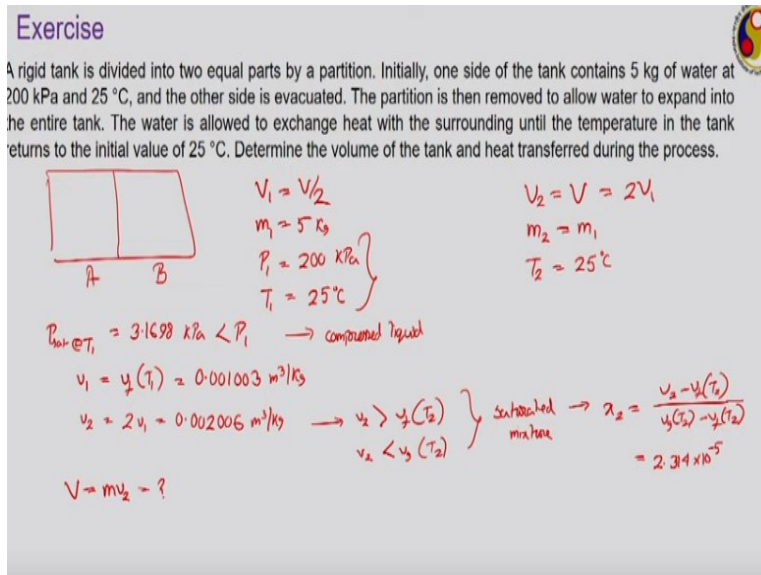 Exercise
A rigid tank is divided into two equal parts by a partition. Initially, one side of the tank contains 5 kg of water at
200 kPa and 25 °C, and the other side is evacuated. The partition is then removed to allow water to expand into
the entire tank. The water is allowed to exchange heat with the surrounding until the temperature in the tank
returns to the initial value of 25 °C. Determine the volume of the tank and heat transferred during the process.
V₁ = V/2
V₂ = V = 2V₁
m₁ = 5 Kg
m₂ = m₁
P₁ = 200 kPa
T₂ = 25°C
T₁ = 25°C
A B
Psat@T₁ = 3.1698 kPa < P₁ → compressed liquid
v₁ = vf(T₁) = 0.001003 m³/Kg
v₂ = 2v₁ = 0.002006 m³/Kg → v₂ > vf(T₂)
v₂ < vg(T₂)
saturated mixture → x₂ = v₂ - vf(T₂) / vg(T₂) - vf(T₂)
= 2.314 × 10⁻⁵
V = mv₂ = ?